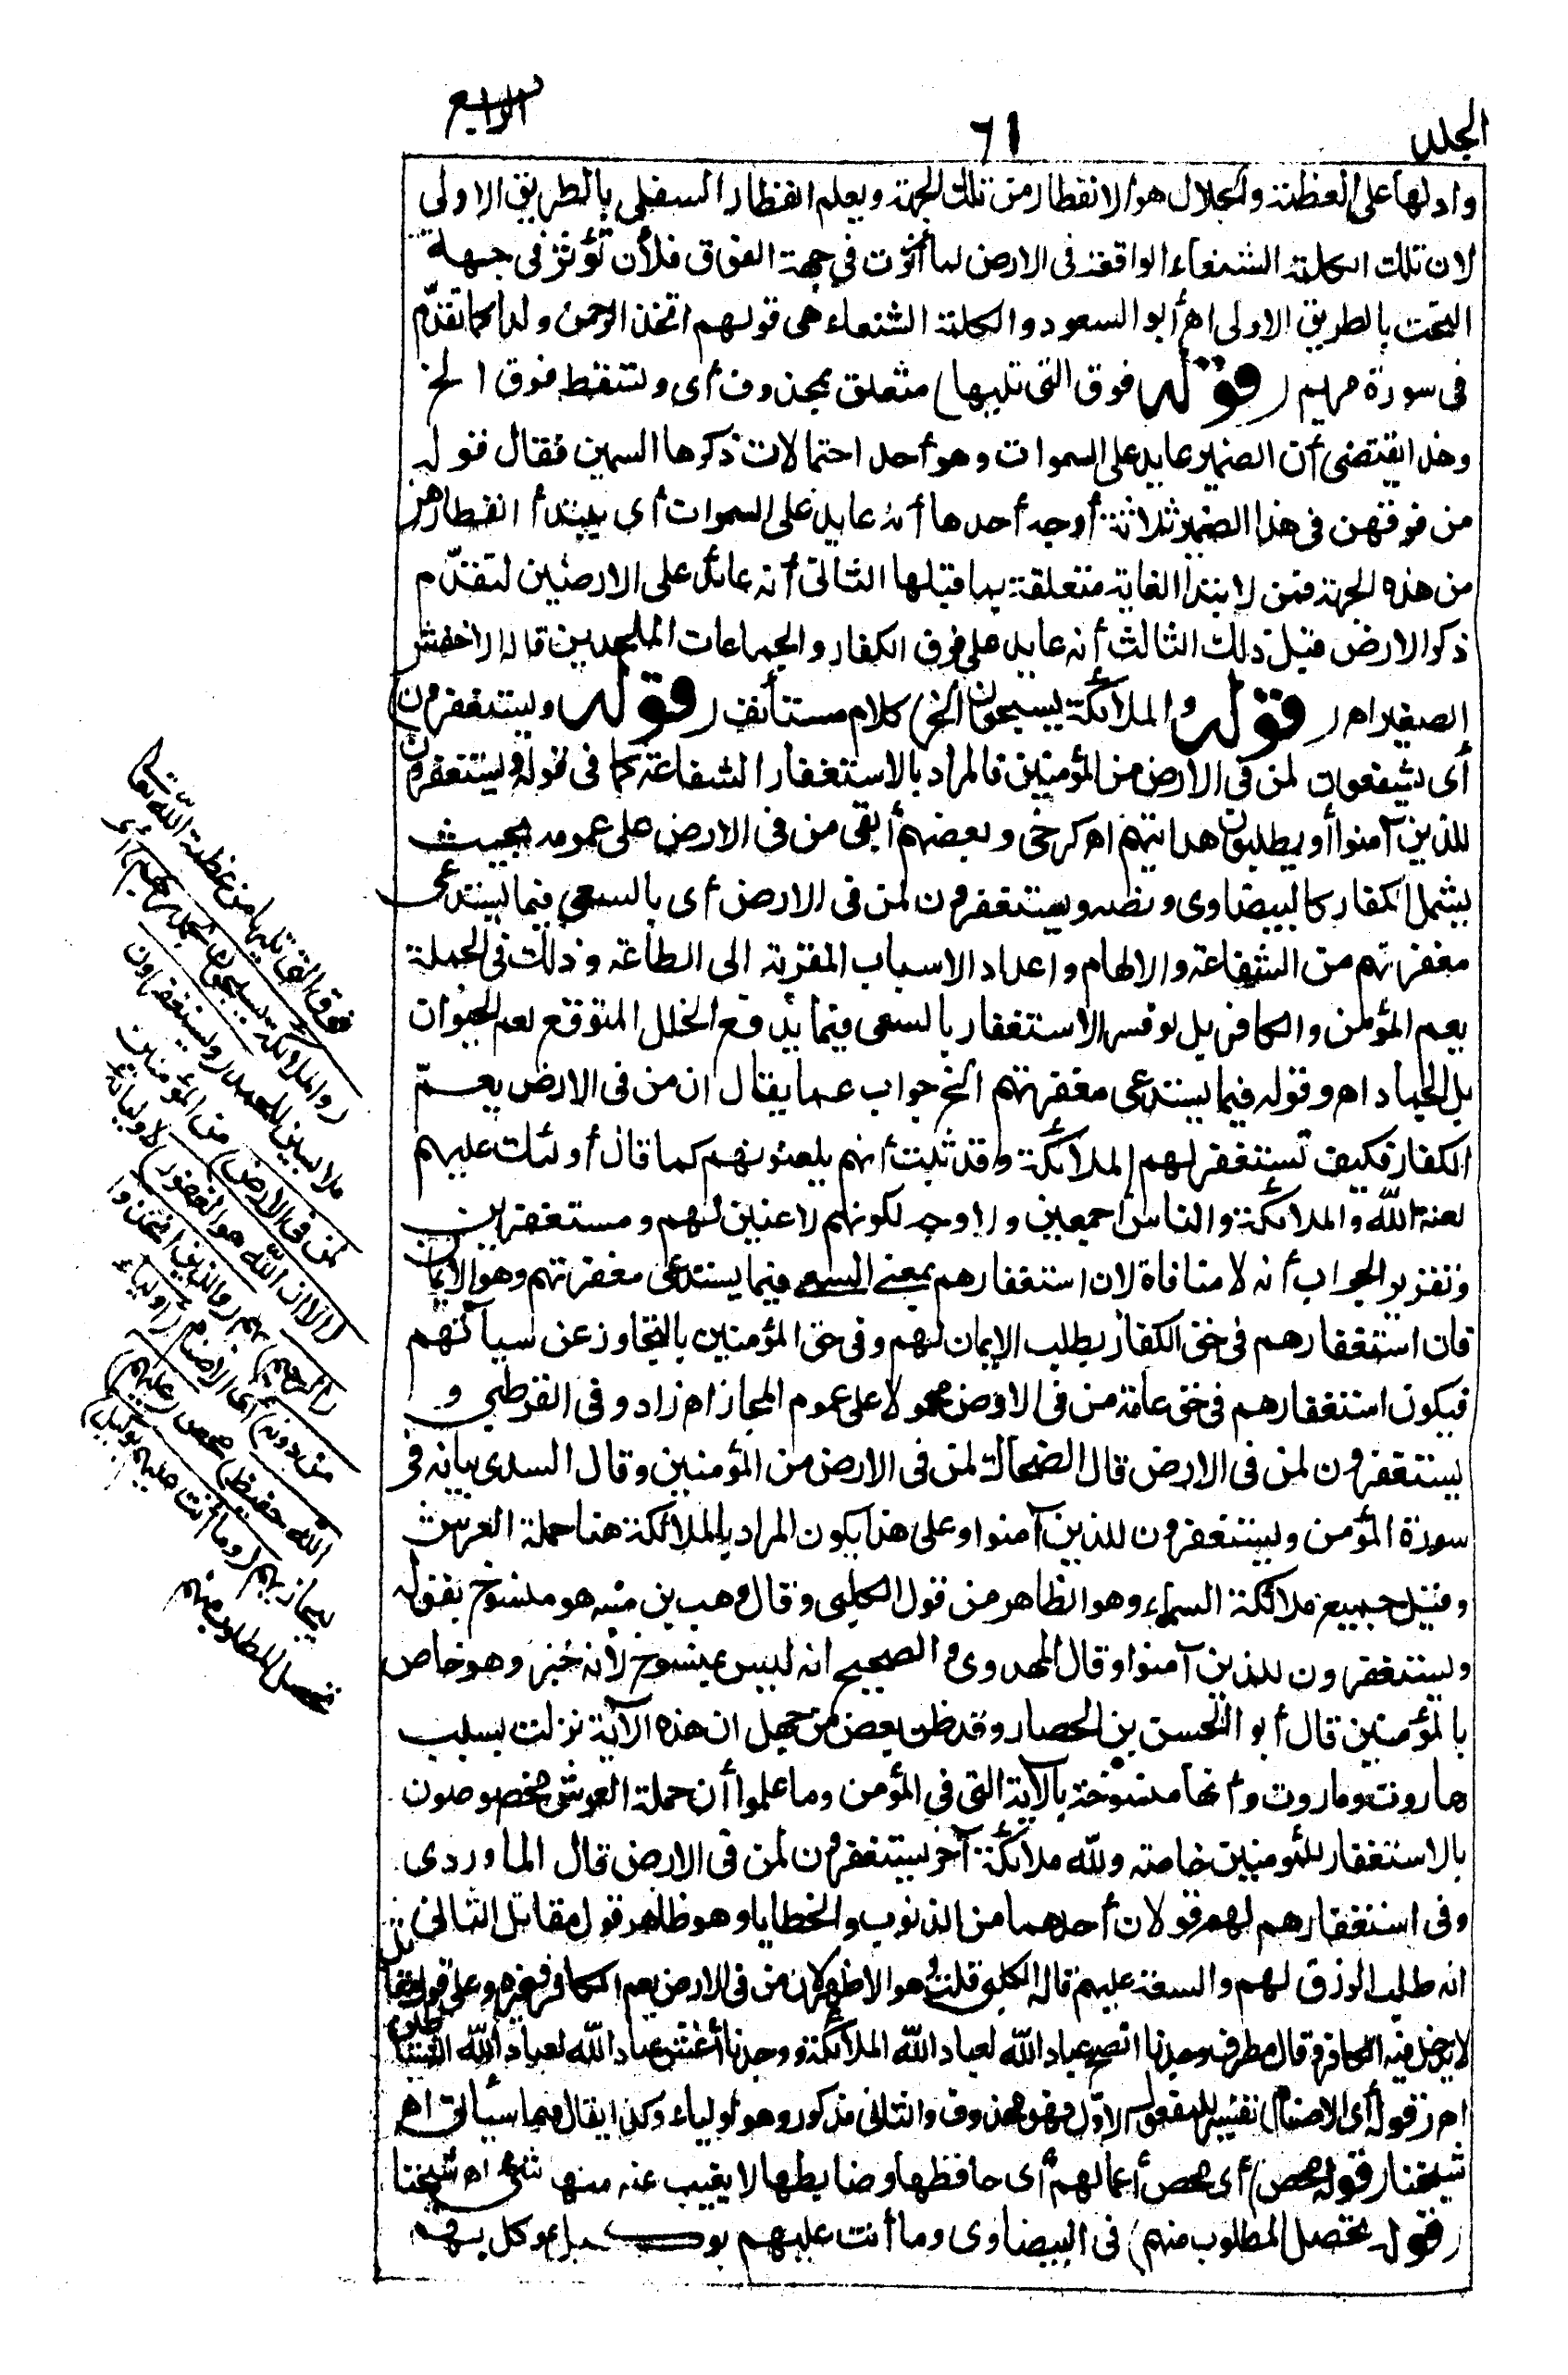 الجلد
٦١
الرابع
وادلها على العظمة والجلال هو الانفطار من تلك الجهة ويعلم انفطار السفلى بالطريق الاولى
لان تلك الكلمة الشنعاء الواقعة فى الارض لما أثرت في جهة الفوق فلأن تؤثر فى جهة
التحت بالطريق الاولى اه أبو السعود والكلمة الشنعاء هى قولهم اتخذ الرحمن ولدا كما تقدّم
فى سورة مريم (قوله فوق التى تليها) متعلق بمحذوف أى وتنفطر فوق الخ
وهذا يقتضى أن الضمير عايد على السموات وهو أحد احتمالات ذكرها السمين فقال قوله
من فوقهن فى هذا الضمير ثلاثة أوجه أحدها أنه عايد على السموات أى يبتدأ انفطارهن
من هذه الجهة فمن لابتدا الغاية متعلقة بما قبلها الثانى أنه عائد على الارضين لتقدّم
ذكر الارض قبل ذلك الثالث أنه عايد على فرق الكفار والجماعات الملحدين قاله الاخفش
الصغير اه (قوله والملائكة يسبحون الخ) كلام مستأنف (قوله ويستغفرون)
أى يشفعون لمن فى الارض من المؤمنين فالمراد بالاستغفار الشفاعة كما فى قوله ويستغفرون
للذين آمنوا أو يطلبون هدايتهم اه كرخى وبعضهم أبقى من فى الارض على عمومه بحيث
يشمل الكفار كالبيضاوى ونصه ويستغفرون لمن فى الارض أى بالسعى فيما يستدعى
مغفرتهم من الشفاعة والالهام واعداد الاسباب المقربة الى الطاعة وذلك فى الجملة
يعم المؤمن والكافر بل لو فسر الاستغفار بالسعى فيما يدفع الخلل المتوقع لعم الحيوان
بل الجماد اه وقوله فيما يستدعى مغفرتهم الخ جواب عما يقال ان من فى الارض يعمّ
الكفار فكيف تستغفر لهم الملائكة وقد ثبت أنهم يلعنونهم كما قال أولئك عليهم
لعنة الله والملائكة والناس اجمعين ولا وجه لكونهم لاعنين لهم ومستغفرين
وتقرير الجواب أنه لا منافاة لان استغفارهم بمعنى السعى فيما يستدعى مغفرتهم وهو الايمان
فان استغفارهم فى حق الكفار بطلب الايمان لهم وفى حق المؤمنين بالتجاوز عن سيآتهم
فيكون استغفارهم فى حق عامة من فى الارض محمولا على عموم المجاز اه زاده وفى القرطبي و
يستغفرون لمن فى الارض قال الضحاك لمن فى الارض من المؤمنين وقال السدى بيانه فى
سورة المؤمن ويستغفرون للذين آمنوا وعلى هذا يكون المراد بالملائكة هنا حملة العرش
وقيل جميع ملائكة السماء وهو الظاهر من قول الكلبى وقال وهب بن منبه هو منسوخ بقوله
ويستغفرون للذين آمنوا وقال المهدوى والصحيح انه ليس بمنسوخ لأنه خبر وهو خاص
بالمؤمنين قال أبو الحسن بن الحصار وقد ظن بعض من جهل ان هذه الآية نزلت بسبب
هاروت وماروت وأنها منسوخة بالآية التى في المؤمن وما علموا أن حملة العرش مخصوصون
بالاستغفار للمؤمنين خاصة ولله ملائكة آخر يستغفرون لمن فى الارض قال الماوردى
وفى استغفارهم لهم قولان أحدهما من الذنوب والخطايا وهو ظاهر قول مقاتل الثانى
انه طلب الرزق لهم والسعة عليهم قاله الكلبى قلت وهو الاظهر لان من فى الارض يعم الكافر وغيره وعلى قول مقاتل
لا يدخل فيه الكافر قال مطرف وجدنا انصح عباد الله لعباد الله الملائكة ووجدنا أغش عباد الله لعباد الله الشياطين
اه (قوله أى الاصنام) تفسير للمفعول الاوّل فهو محذوف والثانى مذكور وهو أولياء وكذا يقال فيما سيأتى اه
شيخنا (قوله محص) أى محص أعمالهم أى حافظها وضابطها لا يغيب عنه منها شئ اه شيخنا
(قوله تحصل المطلوب منهم) فى البيضاوى وما أنت عليهم بوكيل بموكل بهم
فوق التى تليها من عظمة الله تعالى
(والملائكة يسبحون بحمد ربهم) أى
ملابسين للحمد (ويستغفرون
لمن فى الارض) من المؤمنين
(الا ان الله هو الغفور) لاوليائه
(الرحيم) بهم (والذين اتخذوا
من دونه) أى الاصنام (أولياء
الله حفيظ) محص (عليهم)
ليجازيهم (وما أنت عليهم بوكيل)
تحصل المطلوب منهم